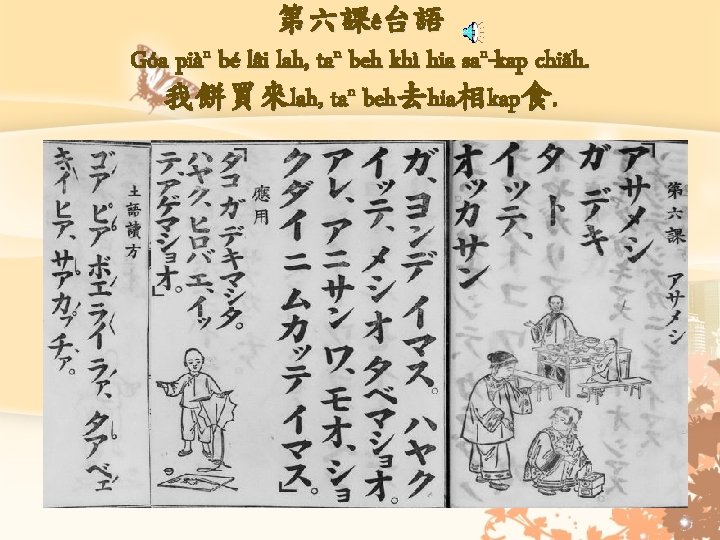 第六課ê台語
Góa piàⁿ bé lâi lah, taⁿ beh khì hia saⁿ-kap chiăh.
我餅買來lah, taⁿ beh去hia相kap食.
第六課 アサメシ
「アサメシ
ガ デキ
タ ト
イッテ、
オッカサン
ガ、ヨンデ イマス。ハヤク
イッテ、メシ オ タベマショオ。
アレ、アニサン ワ、モオ、ショ
クダイ ニ ムカッテ イマス」。
應用
「タコ ガ デキマシタ。
ハヤク、ヒロバ エ、イッ
テ、アゲマショオ。」
土語讀方
ゴア ピア ボエ ライ ラァ、タア ベェ
キイ ヒア、サア カプ チァ。